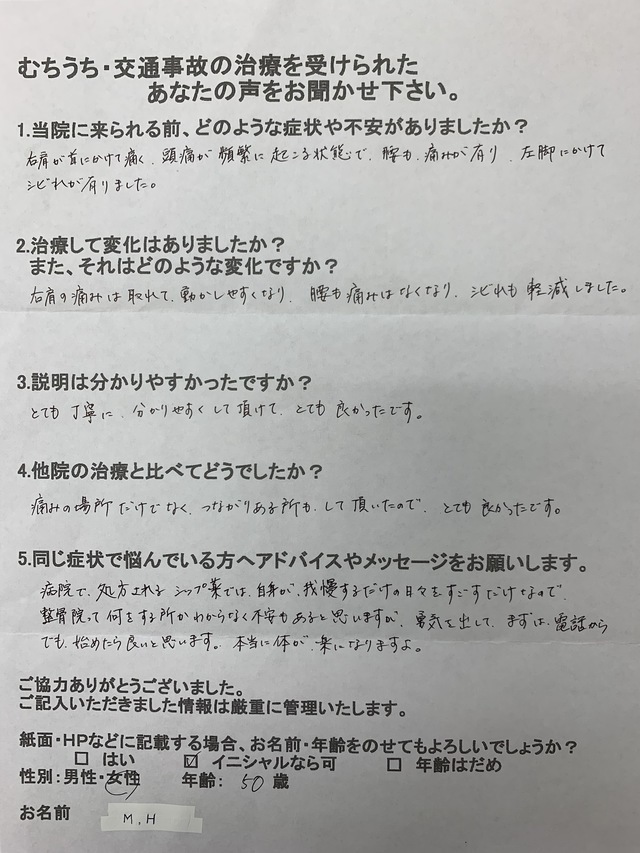 むちうち・交通事故の治療を受けられた
あなたの声をお聞かせ下さい。
1.当院に来られる前、どのような症状や不安がありましたか？
右肩が首にかけて痛く、頭痛が頻繁に起こる状態で、腰も、痛みが有り、左脚にかけて
シビれが有りました。
2.治療して変化はありましたか？
また、それはどのような変化ですか？
右肩の痛みは取れて、動かしやすくなり、腰も痛みはなくなり、シビれも軽減しました。
3.説明は分かりやすかったですか？
とても丁寧に、分かりやすくして頂けて、とても良かったです。
4.他院の治療と比べてどうでしたか？
痛みの場所だけでなく、つながりある所も、して頂いたので、とても良かったです。
5.同じ症状で悩んでいる方へアドバイスやメッセージをお願いします。
病院で、処方されるシップ薬では、自身が、我慢するだけの日々をすごすだけなので、
整骨院って何をする所かわからなく不安もあると思いますが、勇気を出して、まずは、電話から
でも、始めたら良いと思います。本当に体が、楽になりますよ。
ご協力ありがとうございました。
ご記入いただきました情報は厳重に管理いたします。
紙面・HPなどに記載する場合、お名前・年齢をのせてもよろしいでしょうか？
□ はい ☑ イニシャルなら可 □ 年齢はだめ
性別：男性・女性 年齢： 50 歳
お名前 M,H